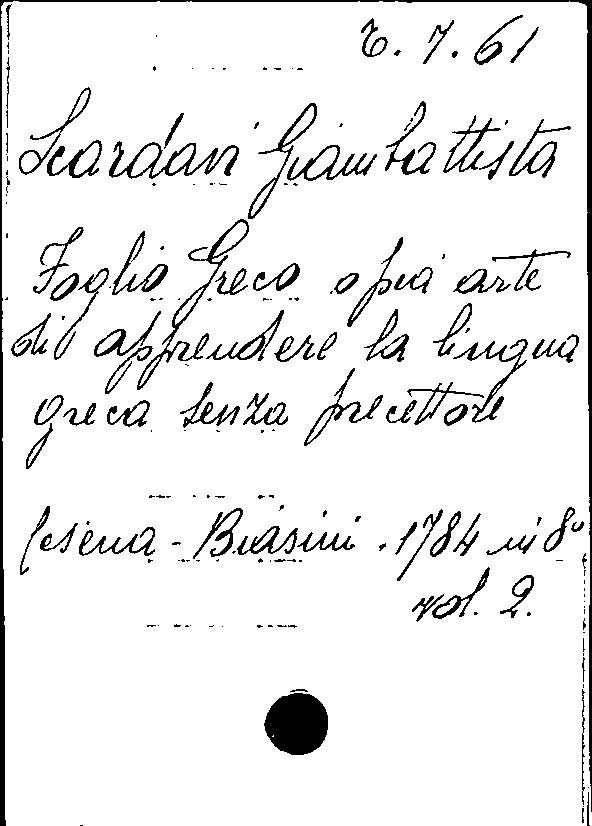 7.61
Scardavi Giambattista
Foglio Greco o sia arte
di apprendere la lingua
greca senza precettore
Cesena - Biasini . 1784 in 8º
vol. 2.